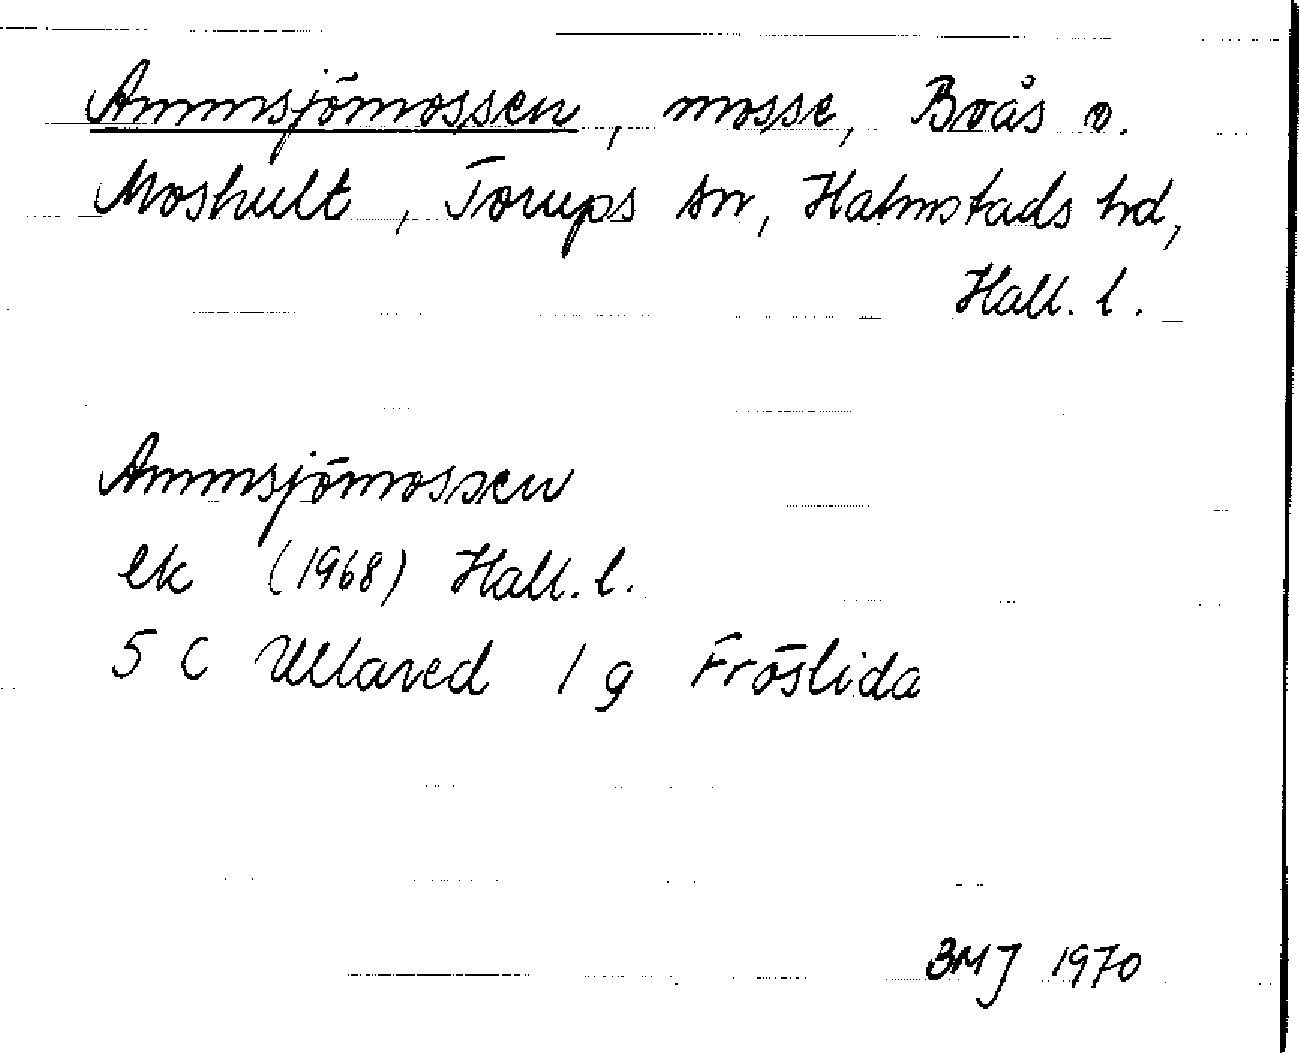 Ammsjömossen, mosse, Boås o.
Moshult, Torups sn, Halmstads hd,
Hall. l.
Ammsjömossen
ek (1968) Hall. l.
5 C Ullared 1 g Fröslida
BMJ 1970